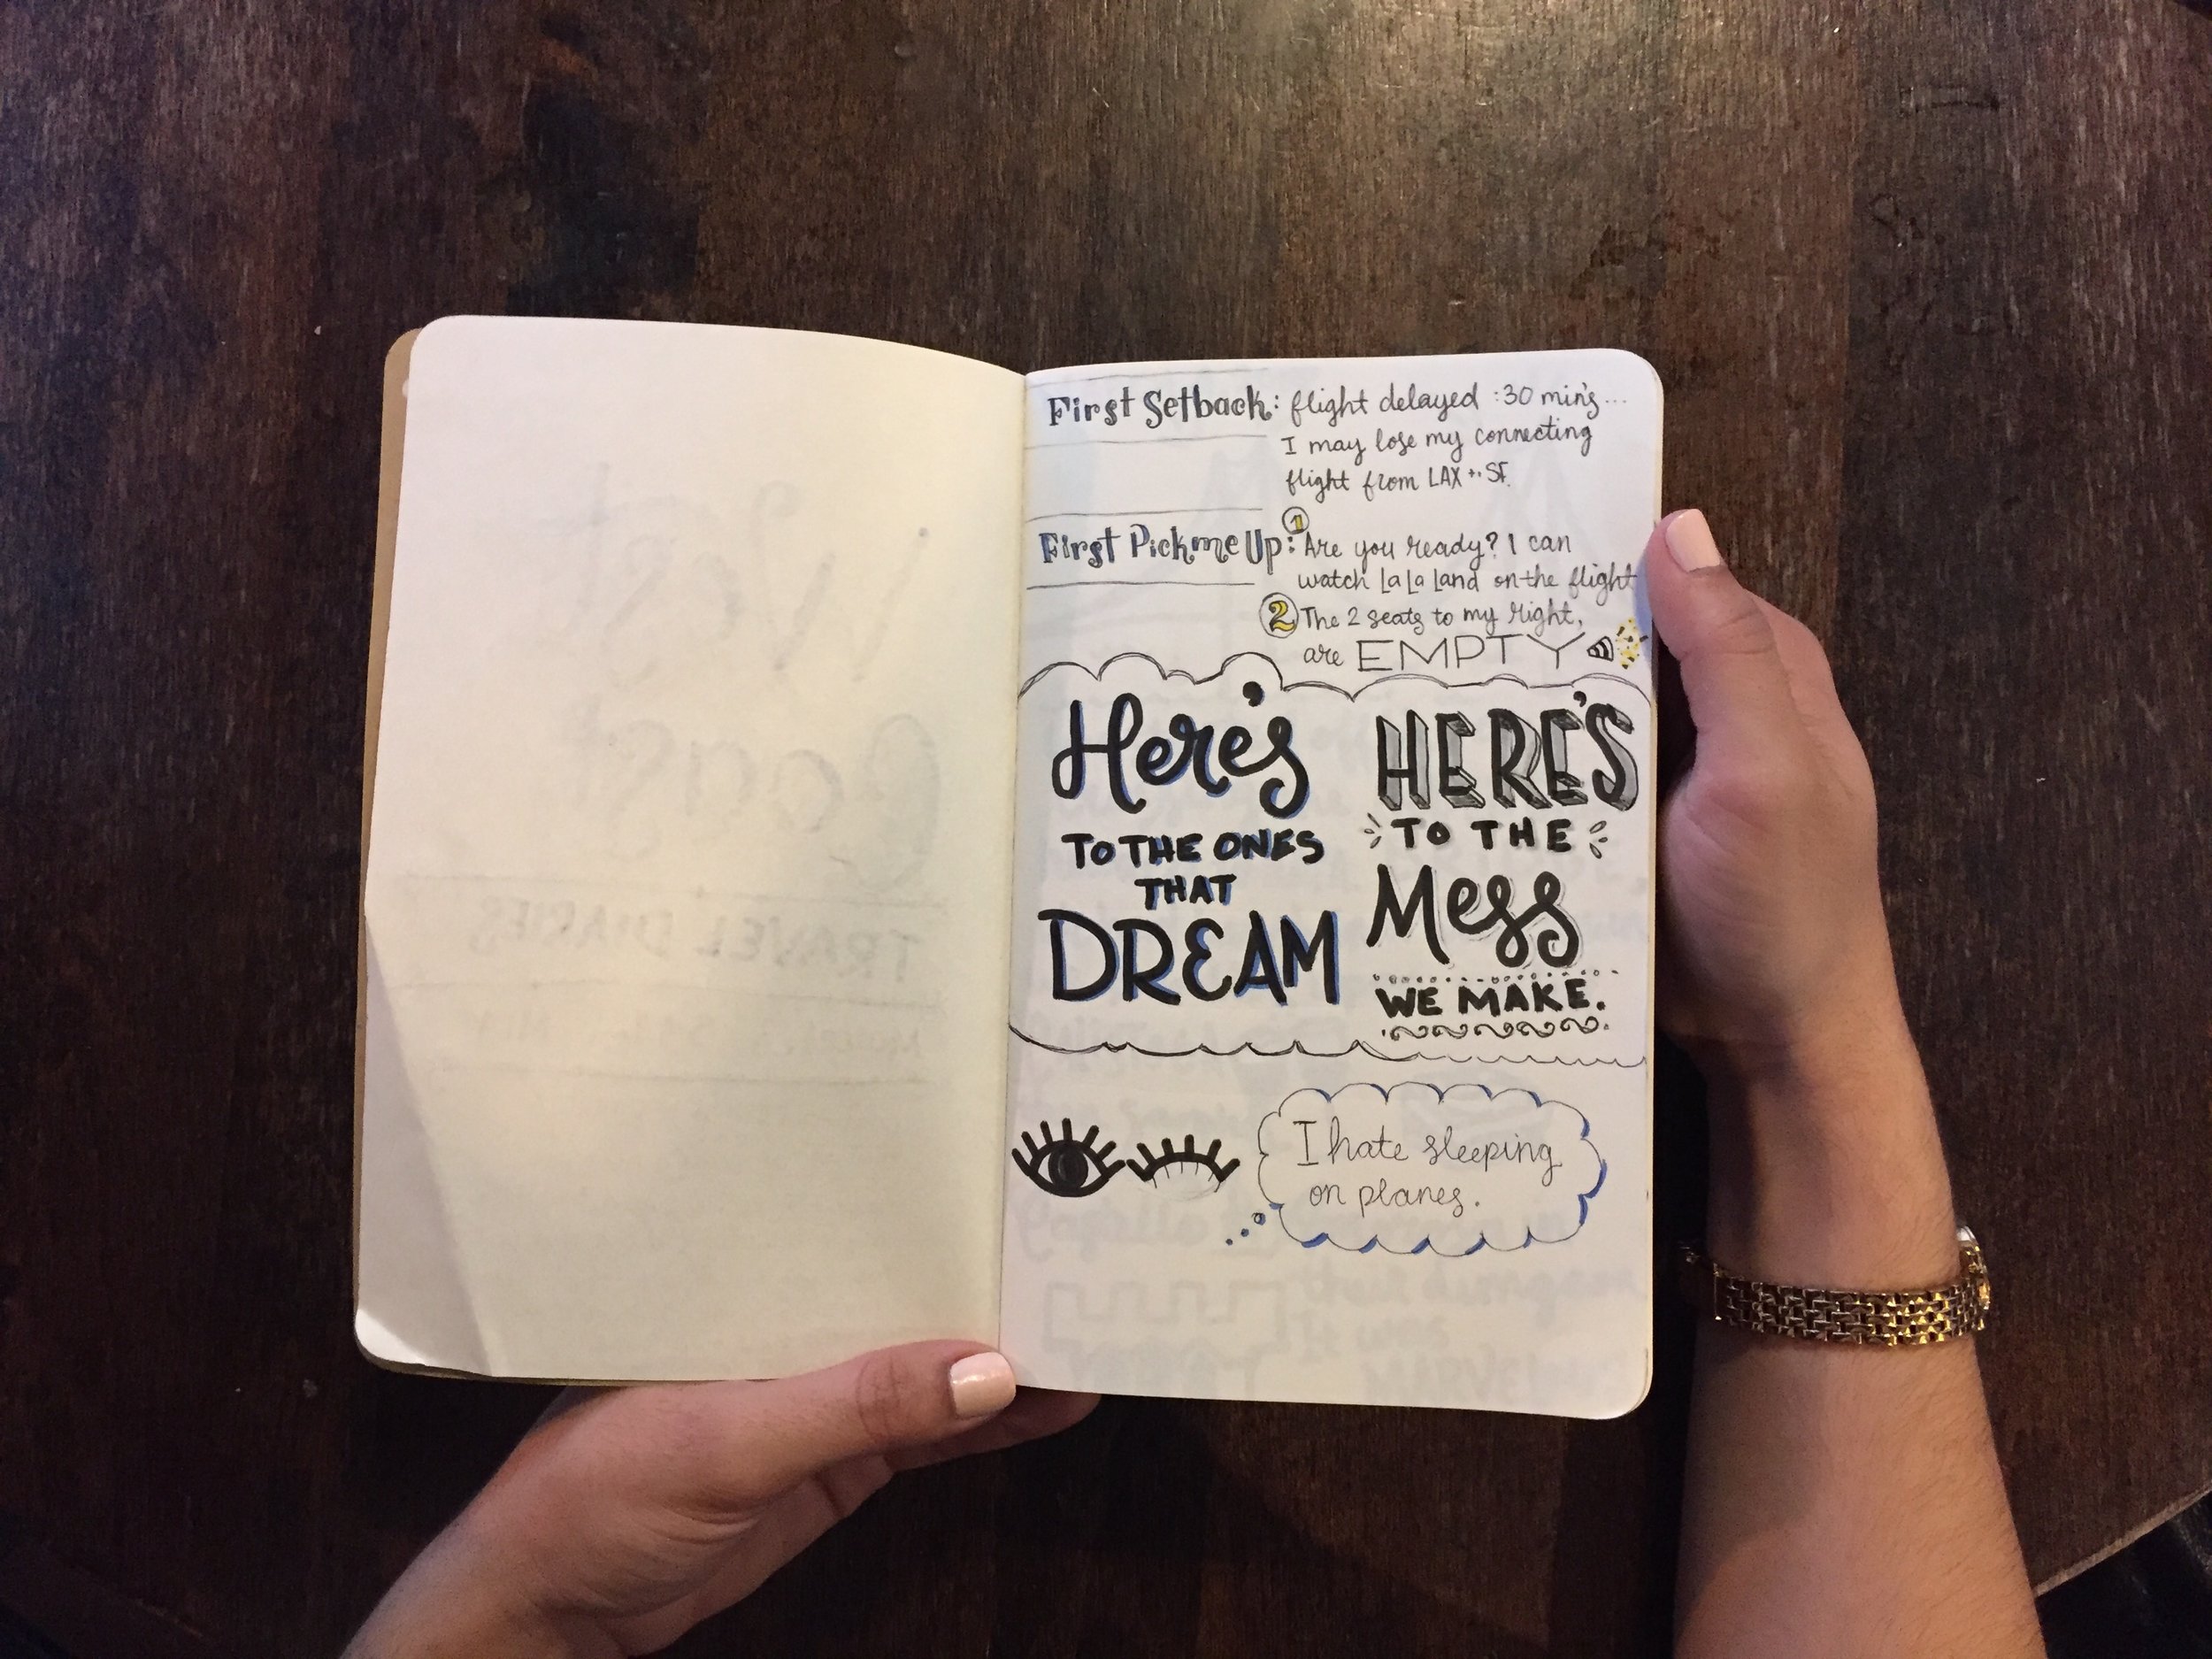 First Setback: flight delayed :30 min's...
I may lose my connecting
flight from LAX to SF.
First Pick me Up: 1 Are you ready? I can
watch La La Land on the flight
2 The 2 seats to my right,
are EMPTY
Here's
TO THE ONES
THAT
DREAM
HERE'S
TO THE
Mess
WE MAKE.
I hate sleeping
on planes.
West
Coast
TRAVEL DIARIES